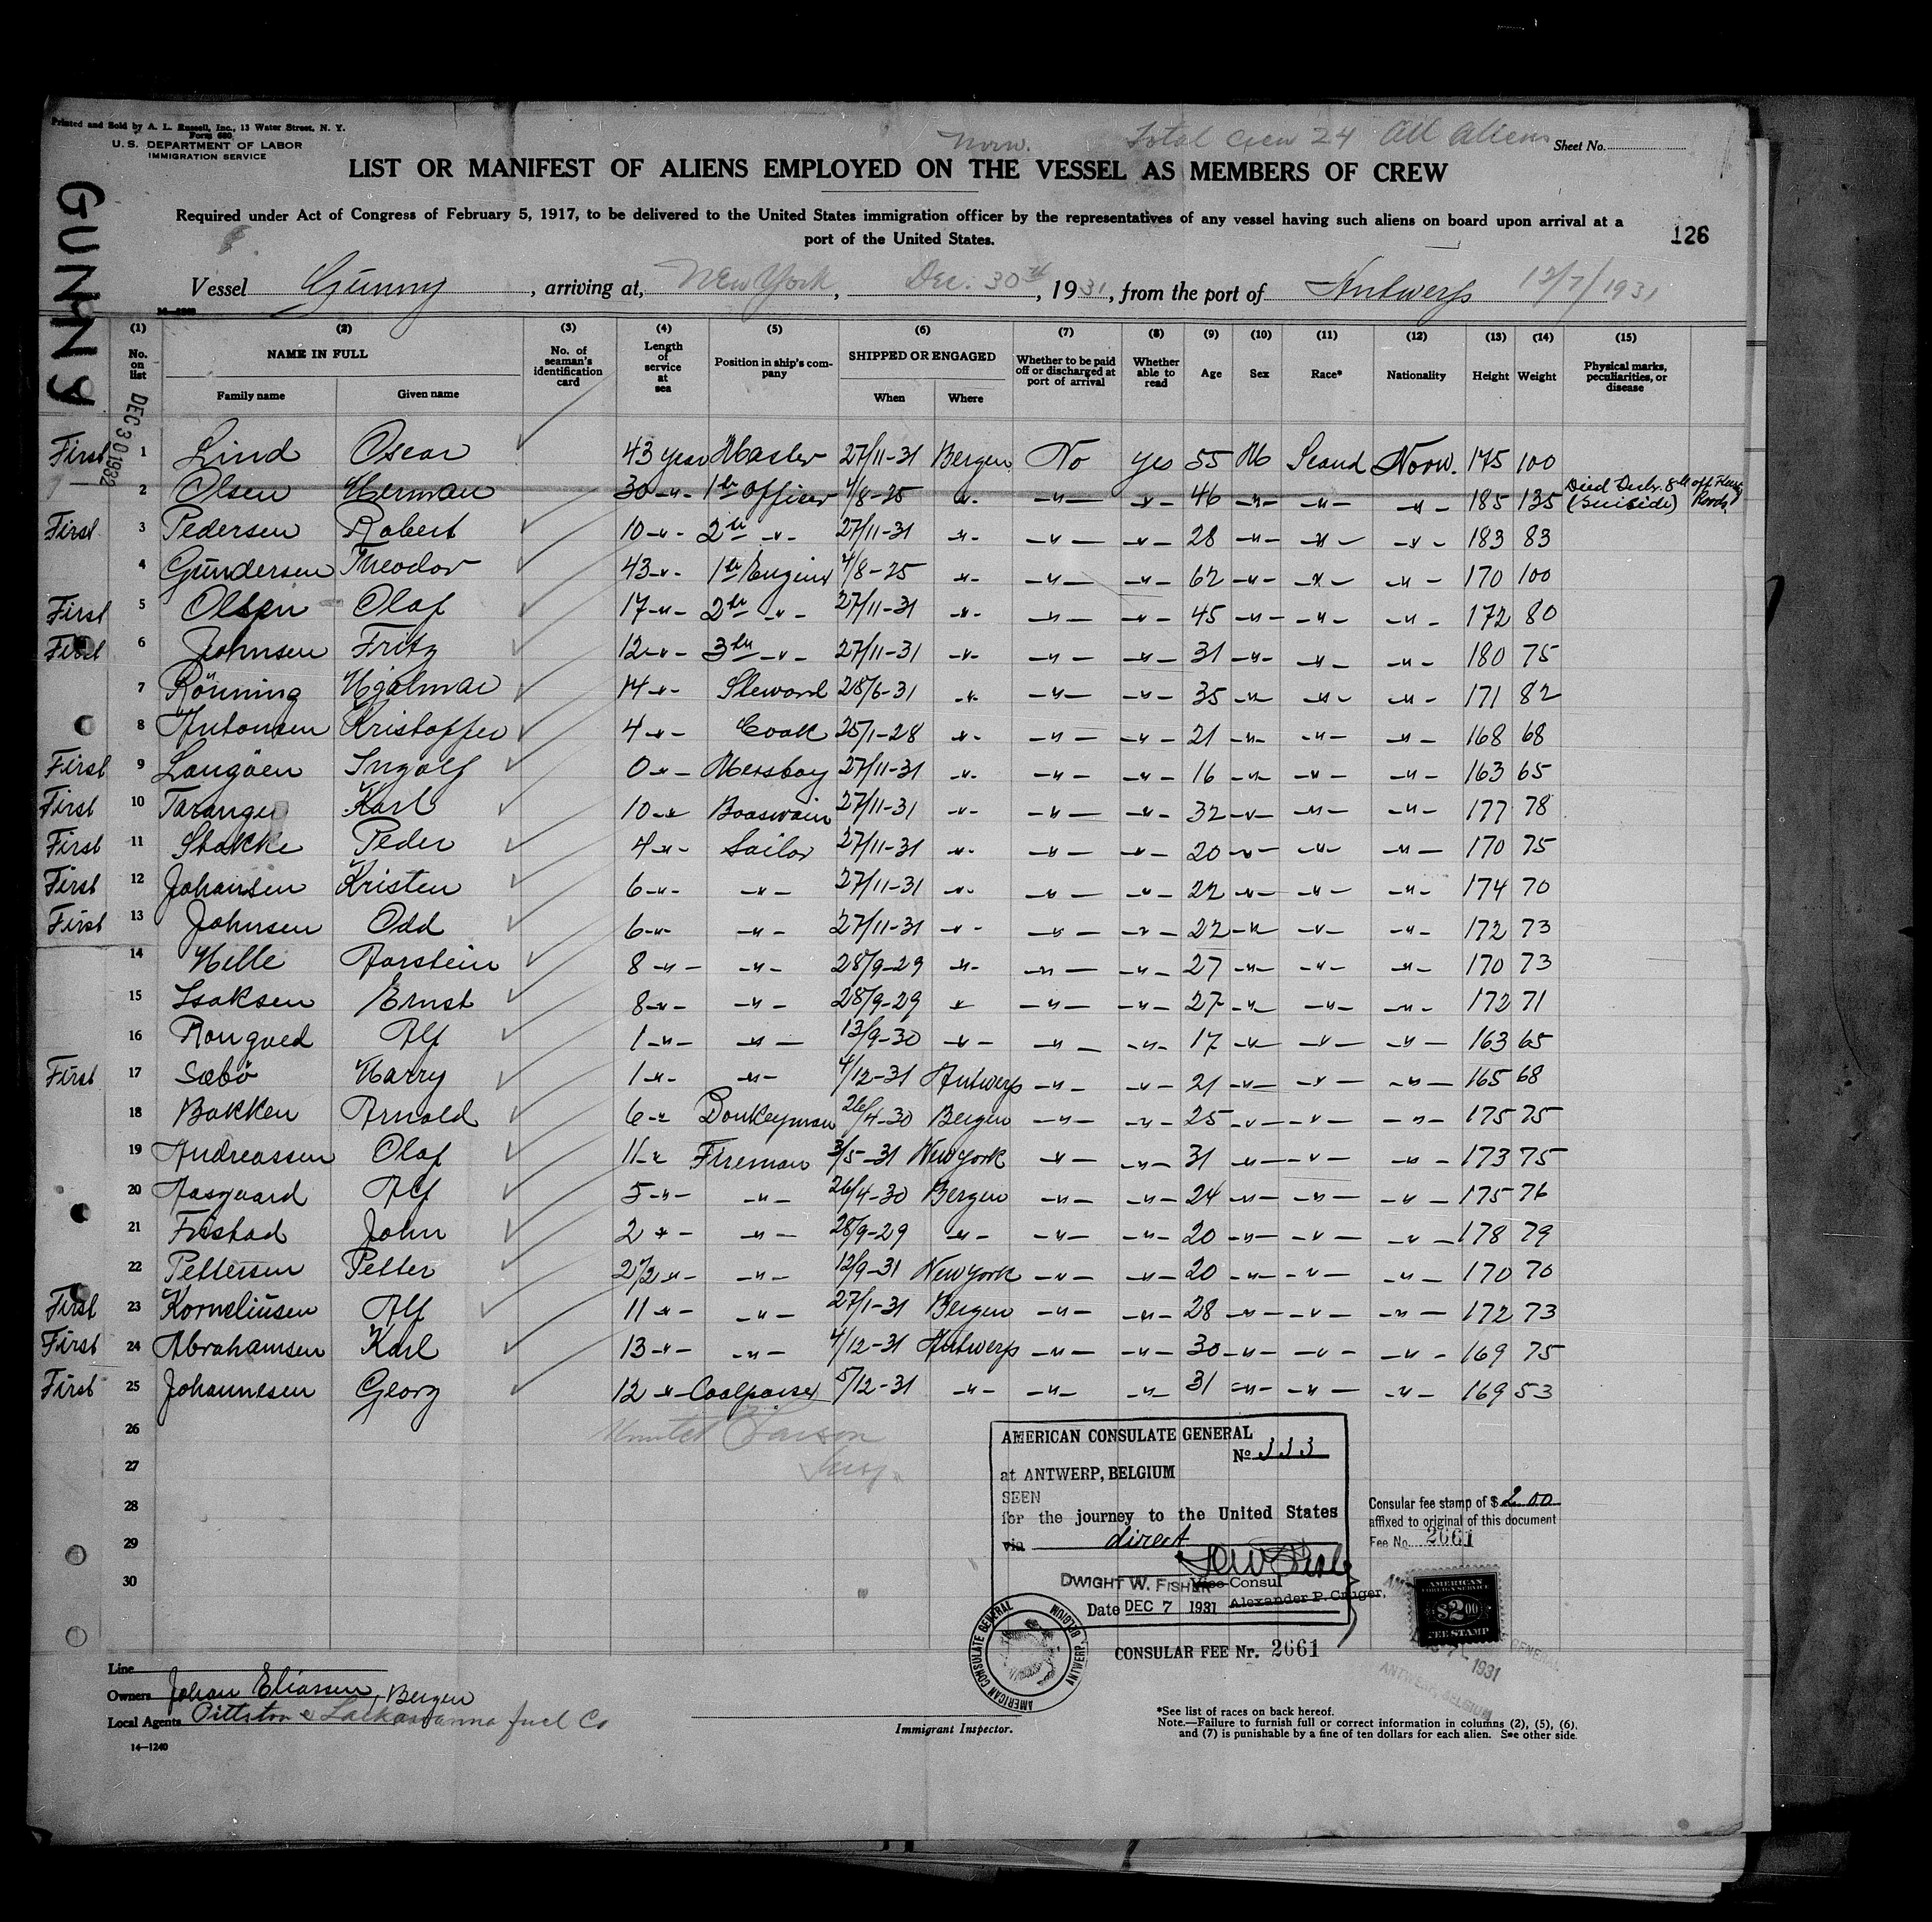 Printed and Sold by A. L. Russell, Inc., 13 Water Street, N. Y.
Form 680
U. S. DEPARTMENT OF LABOR
IMMIGRATION SERVICE
Norw. Total Crew 24 All Aliens Sheet No.
LIST OR MANIFEST OF ALIENS EMPLOYED ON THE VESSEL AS MEMBERS OF CREW
Required under Act of Congress of February 5, 1917, to be delivered to the United States immigration officer by the representatives of any vessel having such aliens on board upon arrival at a
port of the United States.
126
GUNNY
DEC 30 1932
Vessel Gunny, arriving at, New York, Dec. 30th, 1931, from the port of Antwerp 12/7/1931
14-1240
(1) (2) (3) (4) (5) (6) (7) (8) (9) (10) (11) (12) (13) (14) (15)
No. on list NAME IN FULL Family name Given name No. of seaman's identification card Length of service at sea Position in ship's company SHIPPED OR ENGAGED When Where Whether to be paid off or discharged at port of arrival Whether able to read Age Sex Race* Nationality Height Weight Physical marks, peculiarities, or disease
First 1 Lind Oscar 43 year Master 27/11-31 Bergen No yes 55 M Scand Norw. 175 100
2 Olsen Herman 30 -"- 1ste Officer 4/8-25 -"- -"- -"- 46 -"- -"- -"- 185 135 Died Decbr. 8th off (Suicide) Roads
First 3 Pedersen Robert 10 -"- 2 -"- 27/11-31 -"- -"- -"- 28 -"- -"- -"- 183 83
4 Gundersen Theodor 43 -"- 1 Engineer 4/8-25 -"- -"- -"- 62 -"- -"- -"- 170 100
First 5 Olsen Olaf 17 -"- 2 -"- 27/11-31 -"- -"- -"- 45 -"- -"- -"- 172 80
First 6 Johnsen Fritz 12 -"- 3 -"- 27/11-31 -"- -"- -"- 31 -"- -"- -"- 180 75
7 Rönning Hjalmar 14 -"- Steward 28/6-31 -"- -"- -"- 35 -"- -"- -"- 171 82
8 Antonsen Kristoffer 4 -"- Cook 25/1-28 -"- -"- -"- 21 -"- -"- -"- 168 68
First 9 Langöen Ingolf 0 -"- Messboy 27/11-31 -"- -"- -"- 16 -"- -"- -"- 163 65
First 10 Taranger Karl 10 -"- Boaswain 27/11-31 -"- -"- -"- 32 -"- -"- -"- 177 78
First 11 Stakke Peder 4 -"- Sailor 27/11-31 -"- -"- -"- 20 -"- -"- -"- 170 75
First 12 Johansen Kristen 6 -"- -"- 27/11-31 -"- -"- -"- 22 -"- -"- -"- 174 70
First 13 Johnsen Odd 6 -"- -"- 27/11-31 -"- -"- -"- 22 -"- -"- -"- 172 73
14 Helle Aarstein 8 -"- -"- 28/9-29 -"- -"- -"- 27 -"- -"- -"- 170 73
15 Isaksen Ernst 8 -"- -"- 28/9-29 -"- -"- -"- 27 -"- -"- -"- 172 71
16 Rongved Alf 1 -"- -"- 13/9-30 -"- -"- -"- 17 -"- -"- -"- 163 65
First 17 Sæbö Harry 1 -"- -"- 4/12-31 Antwerp -"- -"- 21 -"- -"- -"- 165 68
18 Bakken Arnold 6 -"- Donkeyman 26/4-30 Bergen -"- -"- 25 -"- -"- -"- 175 75
19 Andreassen Olaf 11 -"- Fireman 3/5-31 New York -"- -"- 31 -"- -"- -"- 173 75
20 Aasgaard Alf 5 -"- -"- 26/4-30 Bergen -"- -"- 24 -"- -"- -"- 175 76
21 Fristad John 2 -"- -"- 28/9-29 -"- -"- -"- 20 -"- -"- -"- 178 79
22 Pettersen Petter 2 1/2 -"- -"- 12/9-31 New York -"- -"- 20 -"- -"- -"- 170 70
First 23 Korneliusen Alf 11 -"- -"- 27/1-31 Bergen -"- -"- 28 -"- -"- -"- 172 73
First 24 Abrahamsen Karl 13 -"- -"- 4/12-31 Antwerp -"- -"- 30 -"- -"- -"- 169 75
First 25 Johannesen Georg 12 -"- Coalpasser 5/12-31 -"- -"- -"- 31 -"- -"- -"- 169 53
26
27
28
29
30
AMERICAN CONSULATE GENERAL
No 333
at ANTWERP, BELGIUM
SEEN
for the journey to the United States
via direct
DWIGHT W. FISHER Vice Consul
Date DEC 7 1931 Alexander P. Cruger.
CONSULAR FEE Nr. 2661
AMERICAN CONSULATE GENERAL ANTWERP, BELGIUM
Consular fee stamp of $ 2.00
affixed to original of this document
Fee No. 2661
AMERICAN
FOREIGN SERVICE
$2.00
FEE STAMP
1931
ANTWERP, BELGIUM
Line
Owners Johan Eliassen, Bergen
Local Agents Pittston & Lackawanna Fuel Co
14-1240
Immigrant Inspector.
*See list of races on back hereof.
Note.—Failure to furnish full or correct information in columns (2), (5), (6),
and (7) is punishable by a fine of ten dollars for each alien. See other side.